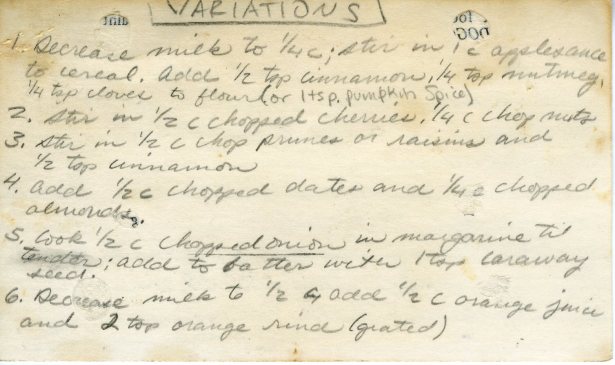 VARIATIONS
1. Decrease milk to 1/4 c; stir in 1 c applesauce
to cereal. Add 1/2 tsp cinnamon, 1/4 tsp nutmeg,
1/4 tsp cloves to flour (or 1 tsp. pumpkin spice)
2. Stir in 1/2 c chopped cherries, 1/4 c chop nuts
3. Stir in 1/2 c chop prunes or raisins and
1/2 tsp cinnamon
4. Add 1/2 c chopped dates and 1/4 c chopped
almonds.
5. Cook 1/2 c chopped onion in margarine til
tender; add to batter with 1 tsp caraway
seed.
6. Decrease milk to 1/2 c, add 1/2 c orange juice
and 2 tsp orange rind (grated)